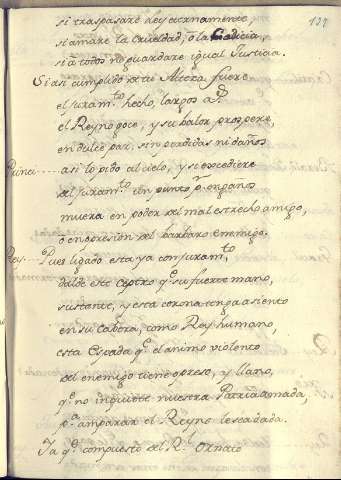 137
si traspasare Rey eternamente
si amare la Crueldad, ò la Codicia,
si à todos no guardare igual Justicia.
Si asi cumplido de tu Alteza fuere
el juramto hecho, largos as
el Reyno goce, y su balor prospere
en dulce paz, sin perdidas ni daños
Princi..... asi lo pido al cielo, y si escediere
del juramto un punto pr engaños
muera en poder del mal estrecho amigo,
o en opresion del barbaro enemigo.
Rey... Pues ligado esta ya con juramto
dalde este Ceptro qe su fuerte mano,
sustente, y esta corona tenga asiento
en su Cabeza, como Rey humano,
esta Espada qe el animo violento
del enemigo tiene opreso, y llano,
qe no inquiete nuestra Patria amada,
pa amparar el Reyno le sea dada.
Ya qe compuesto del Rl Ornato